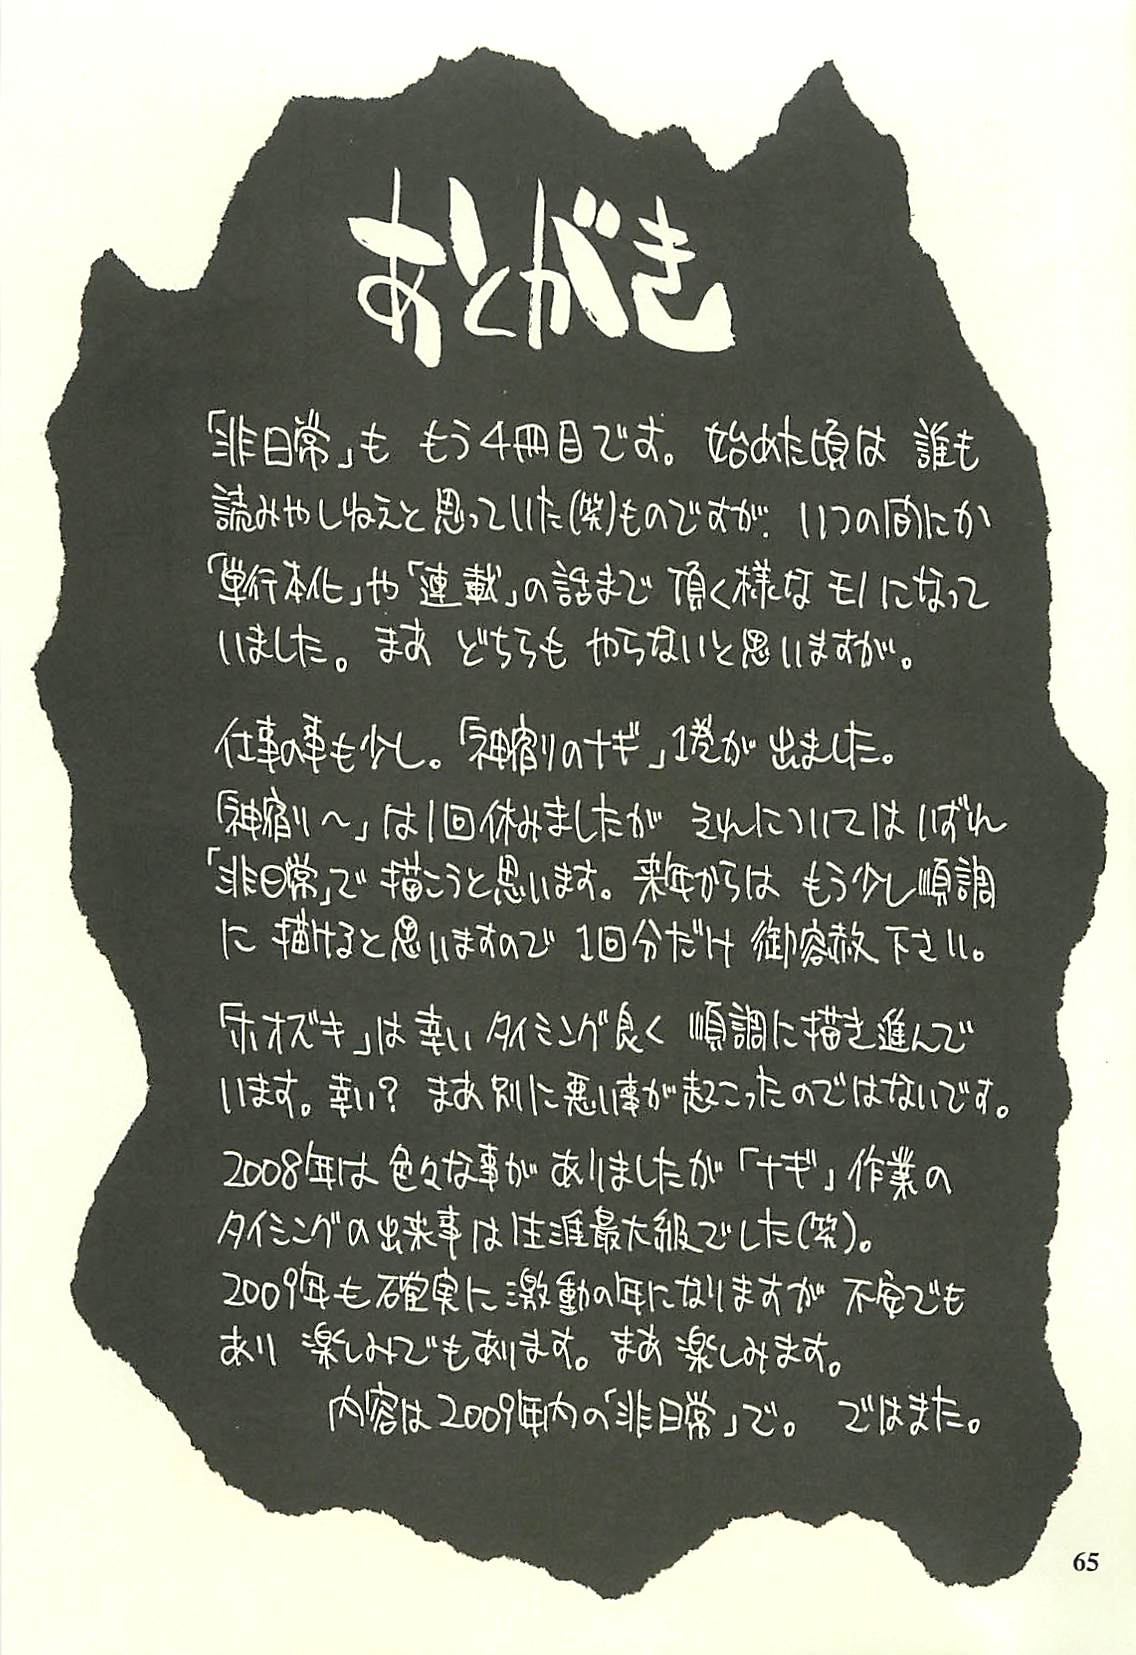 あとがき
「非日常」も もう4冊目です。始めた頃は 誰も
読みやしねえと思っていた(笑)ものですが、いつの間にか
「単行本化」や「連載」の話まで 頂く様なモノになって
いました。まあ どちらも やらないと思いますが。
仕事の事も少し。「神宿りのナギ」1巻が 出ました。
「神宿り〜」は1回休みましたが それについては いずれ
「非日常」で 描こうと思います。来年からは もう少し順調
に 描けると思いますので 1回分だけ 御容赦下さい。
「ホオズキ」は幸い タイミング良く 順調に描き進んで
います。幸い? まあ別に悪い事が起こったのではないです。
2008年は 色々な事が ありましたが「ナギ」作業の
タイミングの出来事は生涯最大級でした(笑)。
2009年も確実に激動の年になりますが 不安でも
あり 楽しみでもあります。まあ 楽しみます。
内容は2009年内の「非日常」で。 ではまた。
65